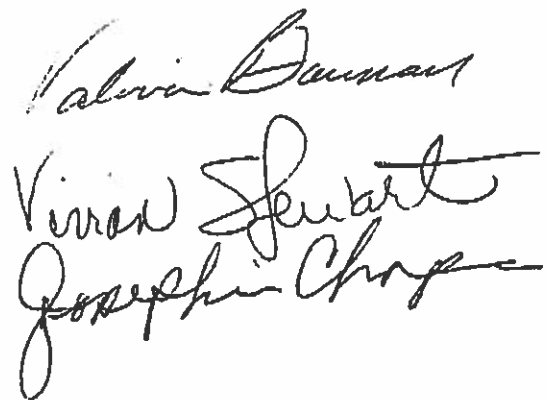 Valerie Bauman
Vivian Stewart
Josephine